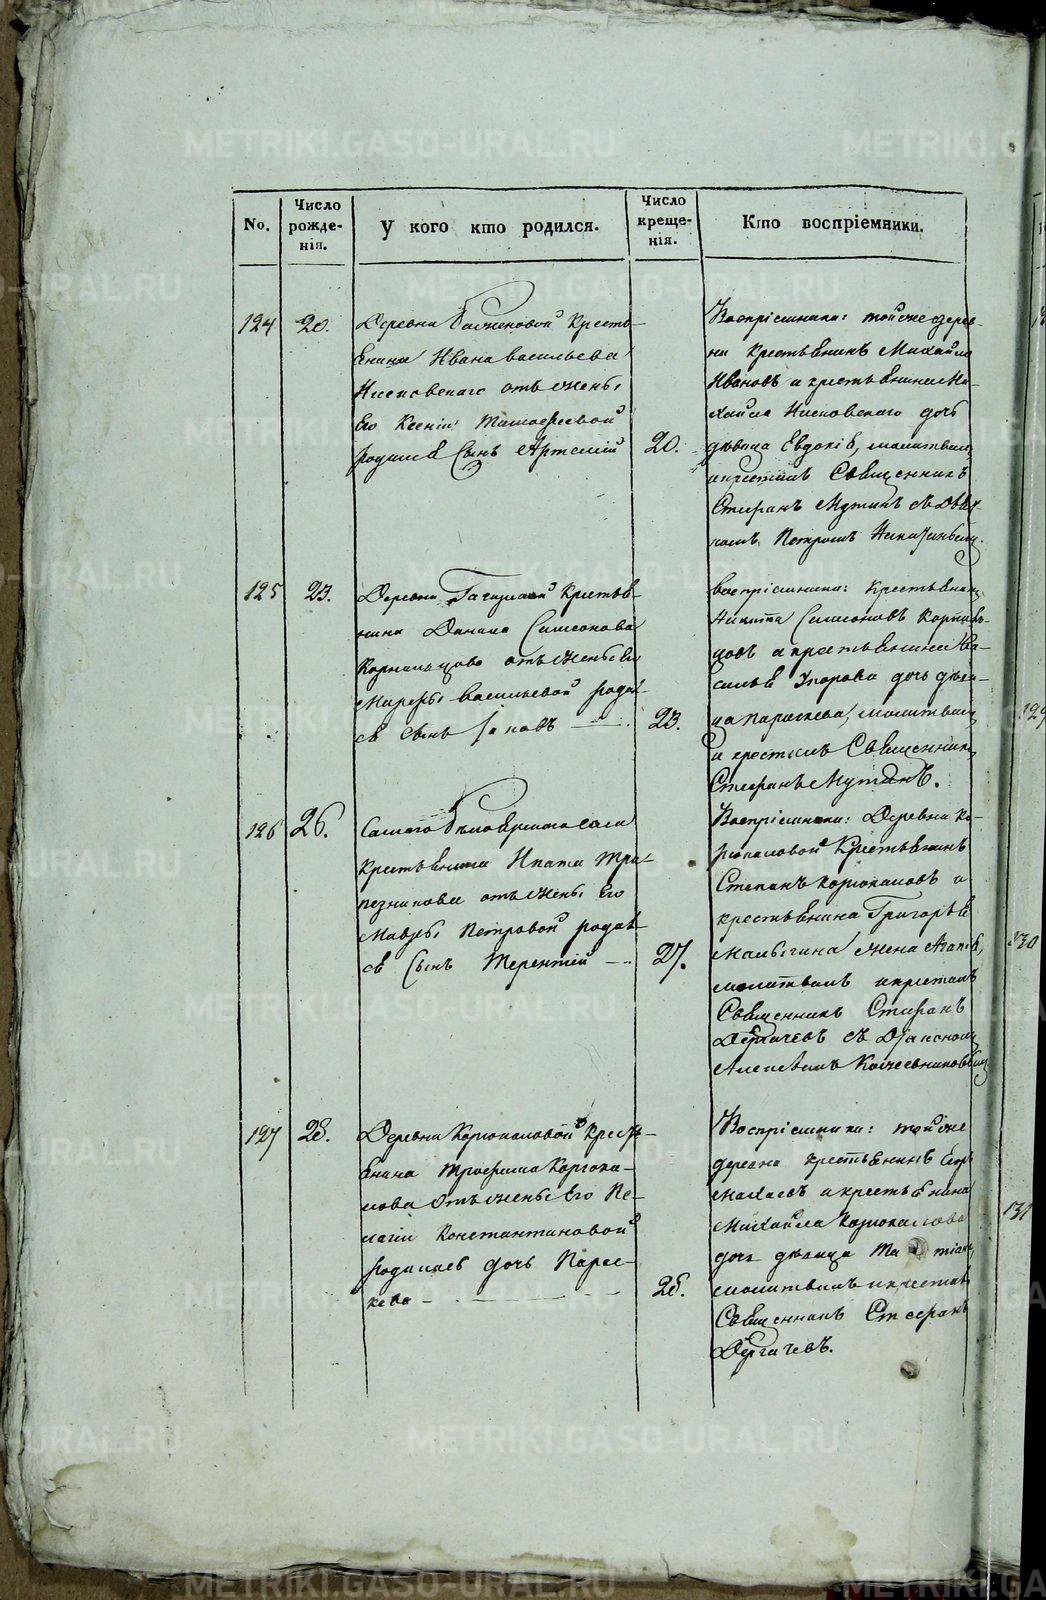 No.
Число рожде-нія.
У кого кто родился.
Число креще-нія.
Кто воспріемники.
124
20.
Деревни крестья-
янина Ивана Васильева
отъ жены
его Ксеніи Тимофеевой
родился сынъ Артемій
20.
Воспріемники: той же дерев-
ни крестьянинъ Михайло
Ивановъ и крестьянина Ми-
хайла дочь
девица Евдокія, молитвилъ
и крестилъ Священникъ
Стефанъ Мутинъ съ Дьяч-
комъ Петромъ
125
23.
Деревни крестья-
нина Данила Симеонова
Корнильцова отъ жены его
Марфы Васильевой родил-
ся сынъ Іаковъ
23.
воспріемники: крестьянинъ
Никита Симеоновъ Корниль-
цовъ и крестьянина Ва-
силья Егорова дочь деви-
ца Параскева, молитвилъ
и крестилъ Священникъ
Стефанъ Мутинъ.
126
26.
Самаго села
крестьянина Ипата Тра-
пезникова отъ жены его
Мавры Петровой родил-
ся сынъ Терентій
27.
Воспріемники: Деревни Ко-
рюкаловой крестьянинъ
Степанъ Корюкаловъ и
крестьянина Григорья
Малыгина жена Агапія,
молитвилъ и крестилъ
Священникъ Стефанъ
Дергачевъ съ Діакономъ
127
28.
Деревни Корюкаловой крестья-
янина Трофима Корюка-
лова отъ жены его Пе-
лагіи Константиновой
родилась дочь Парас-
кева
28.
Воспріемники: той же
деревни крестьянинъ Егоръ
и крестьянина
Михайла Корюкалова
дочь девица
молитвилъ и крестилъ
Священникъ Стефанъ
Дергачевъ.
129
130
131
METRIKI.GASO-URAL.RU